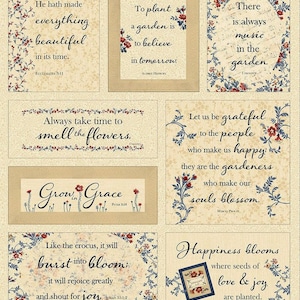 He hath made
everything
beautiful
in its time.
Ecclesiastes 3:11
To plant
a garden is
to believe
in tomorrow.
There
is always
music
in the
garden
Always take time to
smell the flowers.
Let us be grateful
to the people
who make us happy;
they are the gardeners
who make our
souls blossom.
Grow in Grace
Like the crocus, it will
burst into bloom;
it will rejoice greatly
and shout for joy.
Happiness blooms
where seeds of
love & joy
are planted.